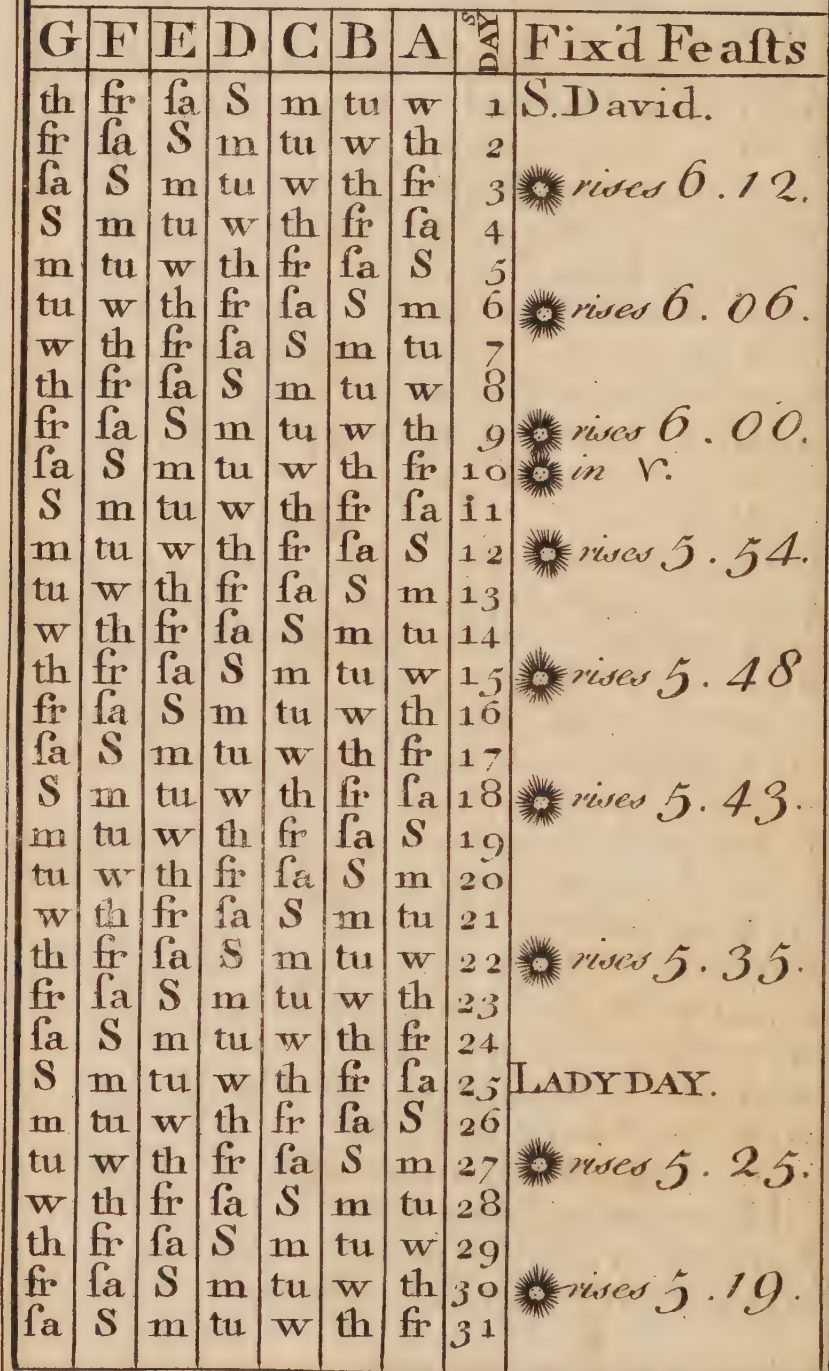 G F E D C B A DAYS Fix'd Feaſts
th fr ſa S m tu w 1 S. David.
fr ſa S m tu w th 2
ſa S m tu w th fr 3 rises 6.12.
S m tu w th fr ſa 4
m tu w th fr ſa S 5
tu w th fr ſa S m 6 rises 6.06.
w th fr ſa S m tu 7
th fr ſa S m tu w 8
fr ſa S m tu w th 9 rises 6.00.
ſa S m tu w th fr 10 in ♈.
S m tu w th fr ſa 11
m tu w th fr ſa S 12 rises 5.54.
tu w th fr ſa S m 13
w th fr ſa S m tu 14
th fr ſa S m tu w 15 rises 5.48
fr ſa S m tu w th 16
ſa S m tu w th fr 17
S m tu w th fr ſa 18 rises 5.43.
m tu w th fr ſa S 19
tu w th fr ſa S m 20
w th fr ſa S m tu 21
th fr ſa S m tu w 22 rises 5.35.
fr ſa S m tu w th 23
ſa S m tu w th fr 24
S m tu w th fr ſa 25 LADY DAY.
m tu w th fr ſa S 26
tu w th fr ſa S m 27 rises 5.25.
w th fr ſa S m tu 28
th fr ſa S m tu w 29
fr ſa S m tu w th 30 rises 5.19.
ſa S m tu w th fr 31